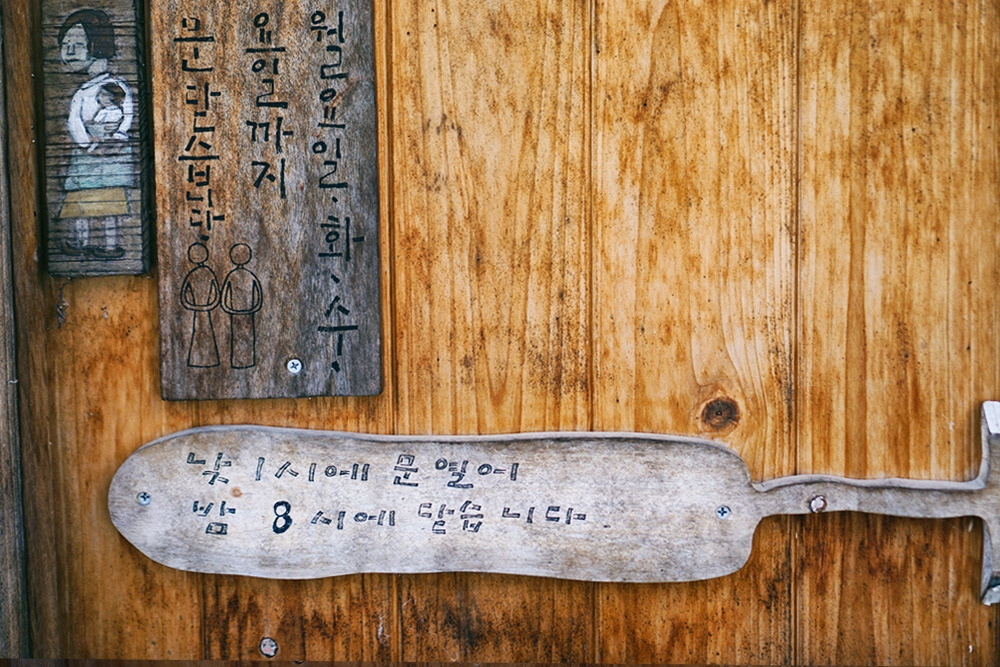 월요일·화·수·
요일까지
문
낮 1시에 문열어
밤 8시에 닫습니다